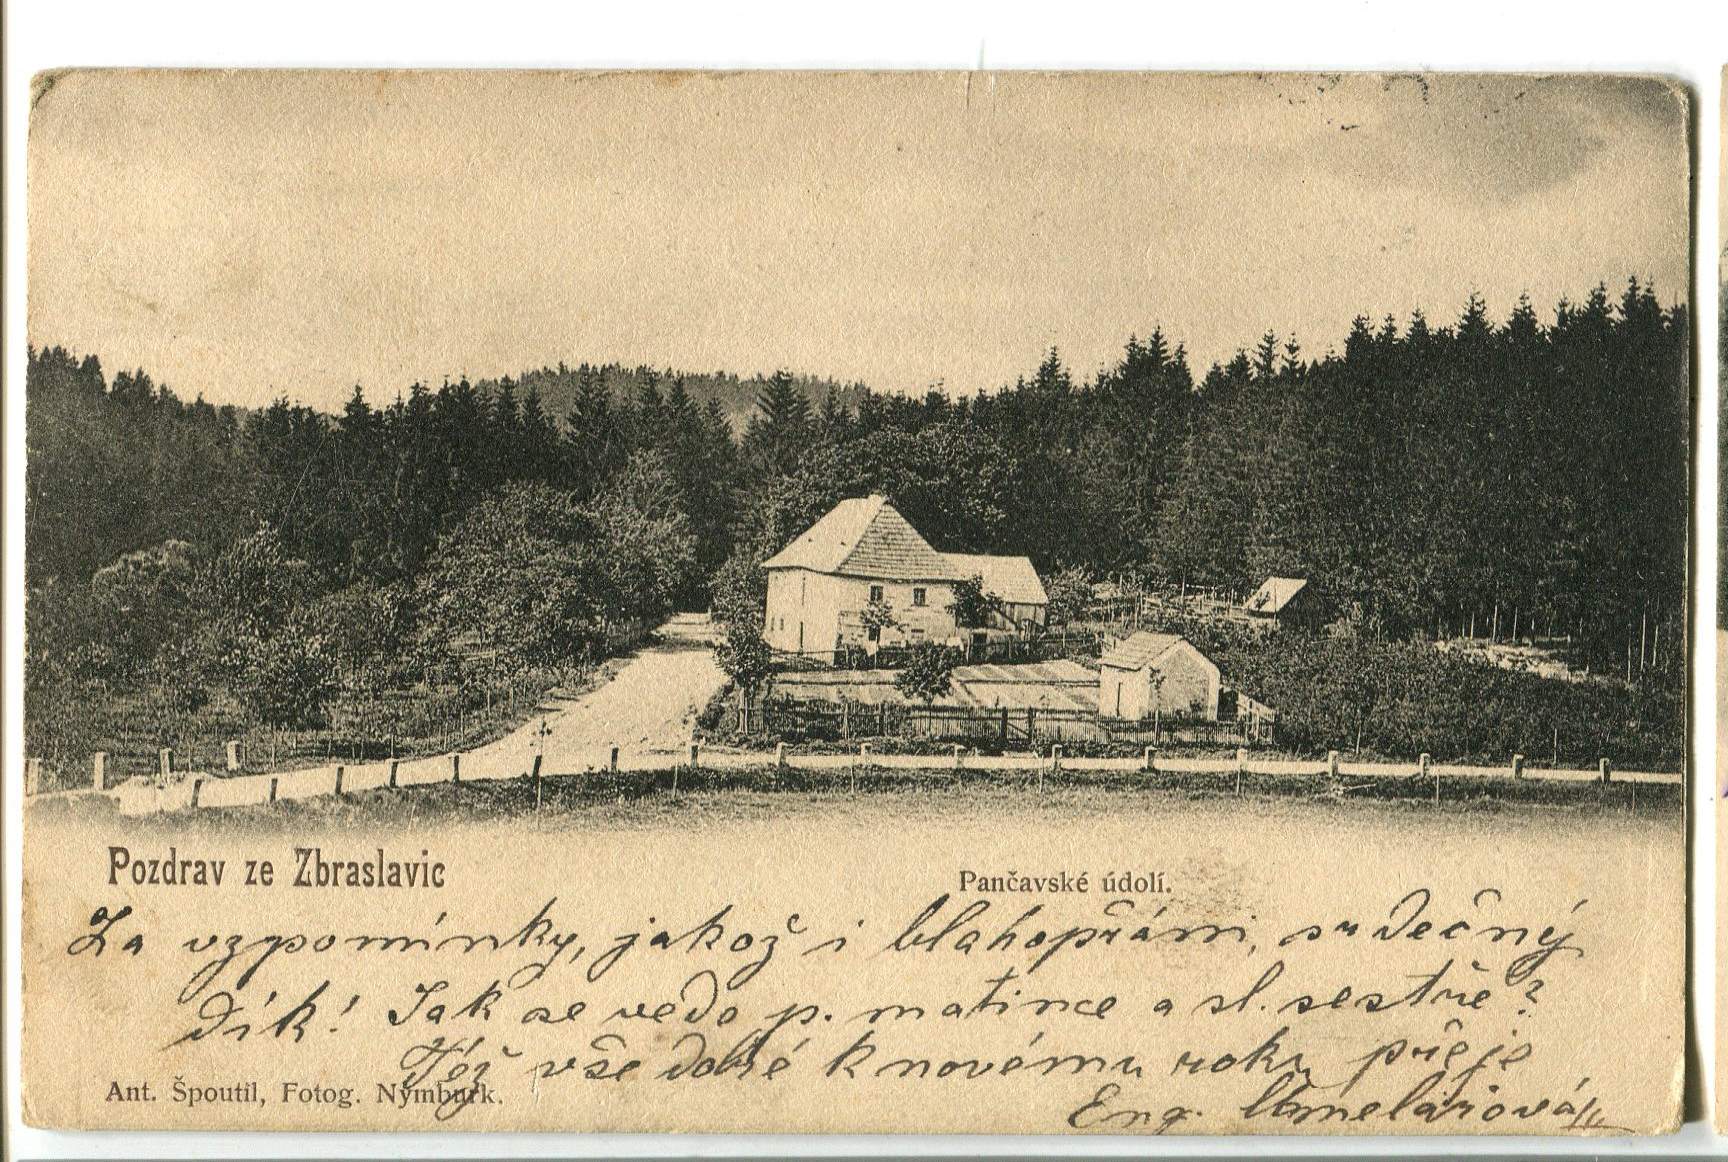 Pozdrav ze Zbraslavic
Pančavské údolí.
Za vzpomínky, jakož i blahopřání, srdečný
dík! Jak se vede p. matince a sl. sestře?
Též vše dobré k novému roku přeje
Ant. Špoutil, Fotog. Nymburk.
Eng.